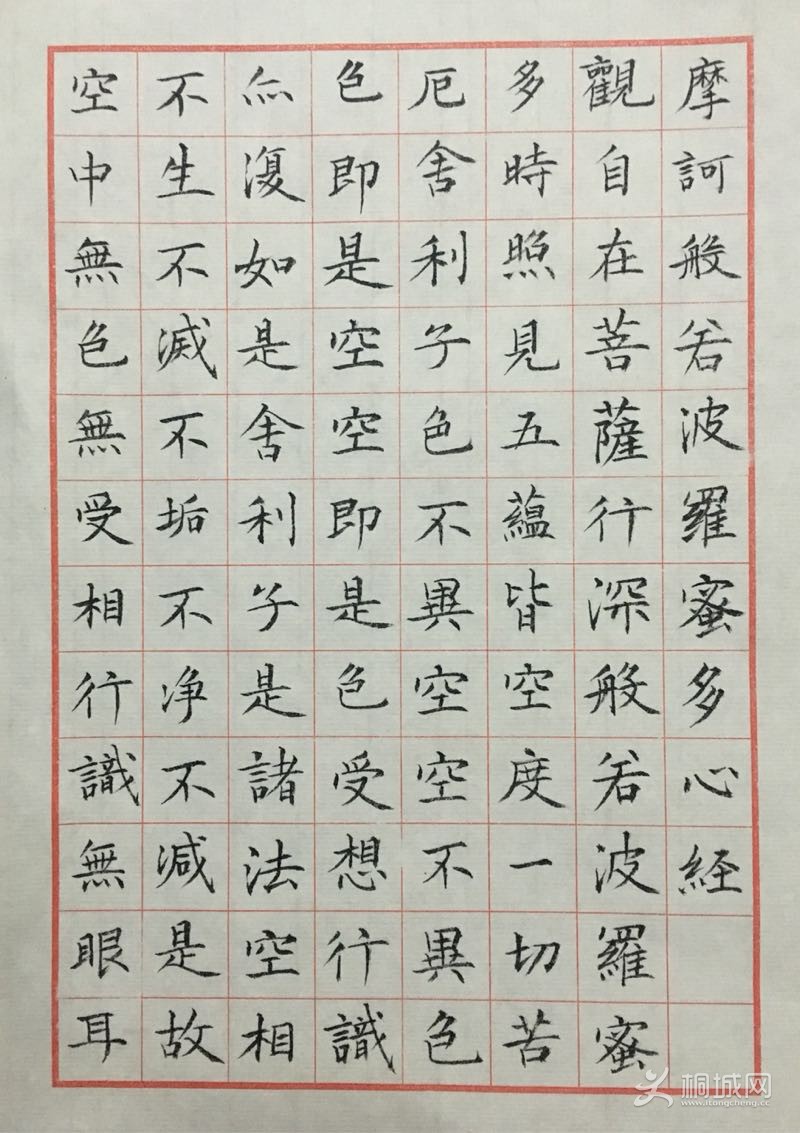 摩訶般若波羅蜜多心経
觀自在菩薩行深般若波羅蜜
多時照見五蘊皆空度一切苦
厄舍利子色不異空空不異色
色即是空空即是色受想行識
亦復如是舍利子是諸法空相
不生不滅不垢不净不減是故
空中無色無受相行識無眼耳
桐城网
www.itongcheng.cc